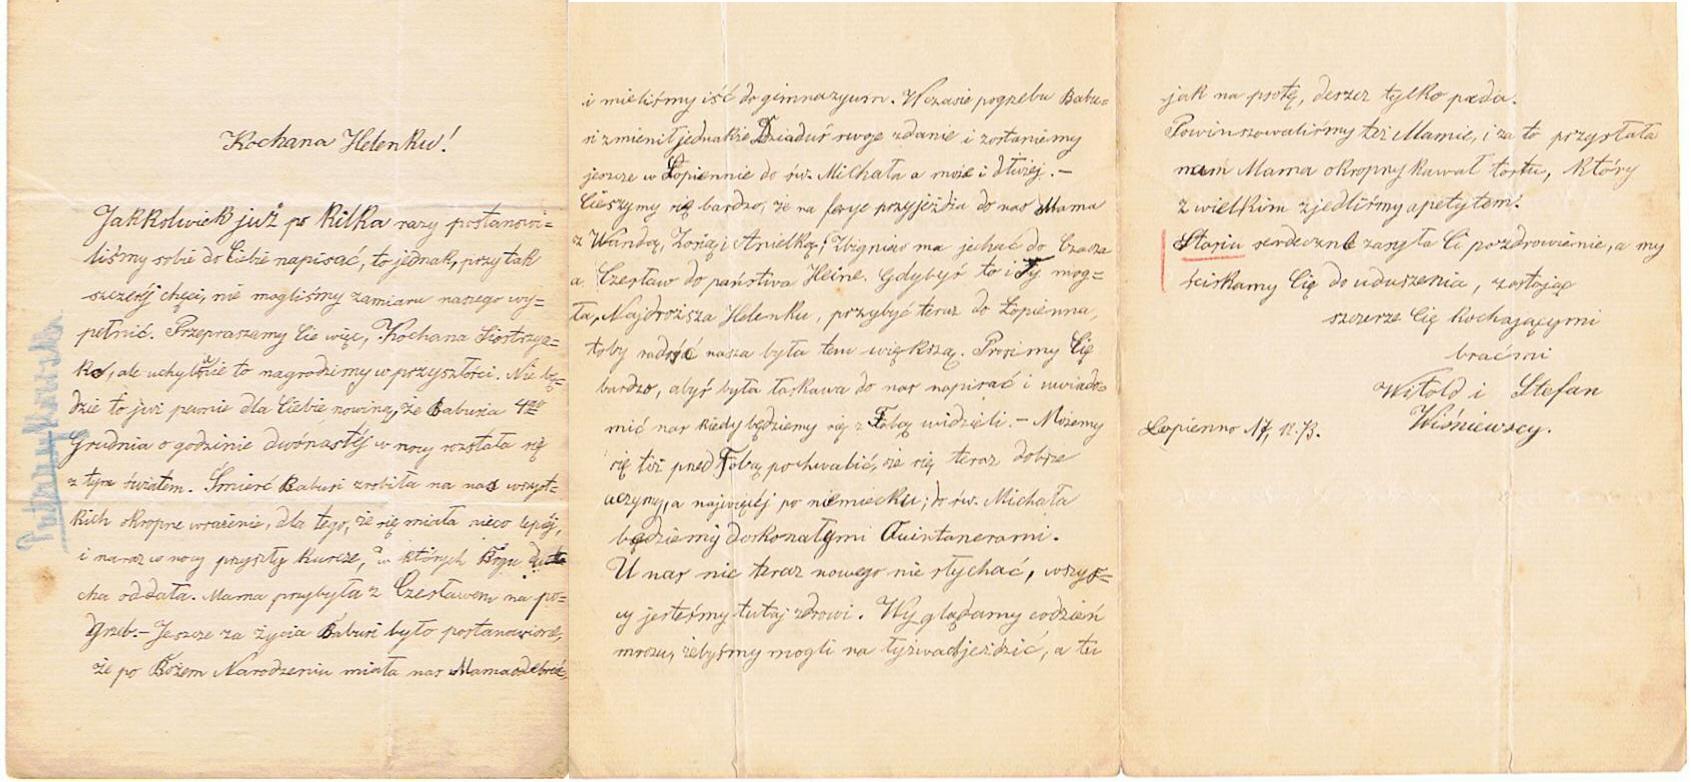 Kochana Helenku!
Jakkolwiek już po kilka razy postanowi=
liśmy sobie do Ciebie napisać, to jednak, przy tak
szczeréj chęci, nie mogliśmy zamiaru naszego wy=
pełnić. Przepraszamy Cie więc, Kochana Siostrzy=
ko, ale uchybienie to nagrodzimy w przyszłości. Nie bę=
dzie to już pewnie dla Ciebie nowiną, że Babusia 4go
Grudnia o godzinie dwónastéj w nocy rozstała się
z tym światem. Śmierć Babusi zrobiła na nas wszyst=
kich okropne wrażenie, dla tego, że się miała nieco lepéj,
i naraz w nocy przyszły kurcze, w których Bogu du
cha oddała. Mama przybyła z Czesławem na po=
grzeb.– Jeszcze za życia Babusi było postanowione,
że po Bożem Narodzeniu miała nas Mama odebrać,
i mieliśmy iść do gimnazyum. W czasie pogrzebu Babu=
si zmienił jednakże Dziaduś swoje zdanie i zostaniemy
jeszcze w Łopiennie do św. Michała a może i dłużéj. –
Cieszymy się bardzo, że na feryje przyjeżdża do nas Mama
z Wandą, Zosią i Anielką; Zbigniew ma jechać do Czacza
a Czesław do państwa Heine. Gdybyś to i Ty mog=
ła, Najdroższa Helenku, przybyć teraz do Łopienna,
toby radość nasza była tem większą. Prosimy Cię
bardzo, abyś była łaskawa do nas napisać i uwiado=
mić nas kiedy będziemy się z Tobą widzieli. – Możemy
się też przed Tobą pochwalić, że się teraz dobrze
uczymy, a najwięcéj po niemiecku; do św. Michała
będziemy doskonałymi Quintanerami.
U nas nic teraz nowego nie słychać, wszys=
cy jesteśmy tutaj zdrowi. Wyglądamy codzień
mrozu, żebyśmy mogli na łyżwach jeździć, a tu
jak na psotę, deszcz tylko pada.
Powinszowaliśmy też Mamie, i za to przysłała
nam Mama okropny kawał tortu, który
z wielkim zjedliśmy apetytem.
Stasiu serdeczne zasyła Ci pozdrowienie, a my
ściskamy Cię do uduszenia, zostając
szczerze Cię kochającymi
braćmi
Witold i Stefan
Wiśniewscy.
Łopienno 17, 12. 73.